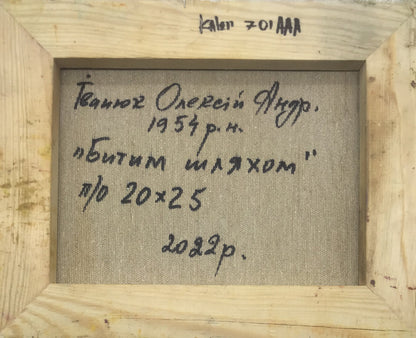 701ААА
Іванюк Олексій Андр.
1954 р.н.
"Битим шляхом"
п/о 20x25
2022р.